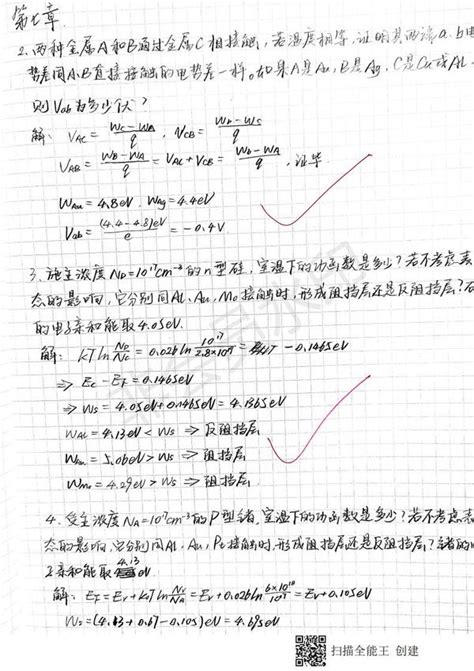 第七章
2. 两种金属A和B通过金属C相接触,若温度相等,证明其两端a.b电
势差同A.B直接接触的电势差一样。如果A是Au,B是Ag,C是Cu或Al.
则Vab为多少伏?
解: VAC = (WC-WA)/q , VCB = (WB-WC)/q
VAB = (WB-WA)/q = VAC + VCB = (WB-WA)/q , 证毕.
WAu = 4.8eV , WAg = 4.4eV
Vab = (4.4-4.8)eV/e = -0.4V.
3. 施主浓度ND=10¹⁷cm⁻³的n型硅,室温下的功函数是多少?若不考虑表
态的影响,它分别同Al、Au、Mo接触时,形成阻挡层还是反阻挡层?
的电子亲和能取4.05eV.
解: kT ln ND/NC = 0.026 ln 10¹⁷/2.8×10¹⁹ = -0.1465eV
⇒ EC - EF = 0.1465eV
⇒ WS = 4.05eV+0.1465eV = 4.1965eV
WAl = 4.13eV < WS ⇒ 反阻挡层
WAu = 5.06eV > WS ⇒ 阻挡层
WMo = 4.29eV > WS ⇒ 阻挡层.
4. 受主浓度NA=10¹⁷cm⁻³的P型锗,室温下的功函数是多少?若不考虑表
态的影响,它分别同Al、Au、Pt接触时,形成阻挡层还是反阻挡层?锗的
子亲和能取4.13eV.
解: EF = EV + kT ln NV/NA = EV + 0.026 ln 6×10¹⁸/10¹⁷ = EV + 0.105eV
WS = (4.13+0.67-0.105)eV = 4.695eV
扫描全能王 创建